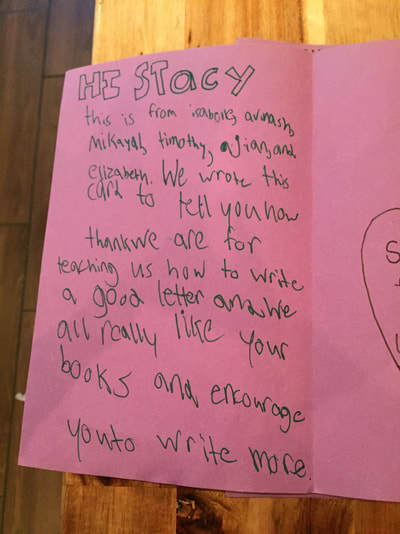 HI STacy
this is from isabelle, avinash,
Mikayah, timothy, and
elizabeth. We wrote this
card to tell you how
thankwe are for
teaching us how to write
a good letter and we
all really like your
books and enkourage
you to write more.
S